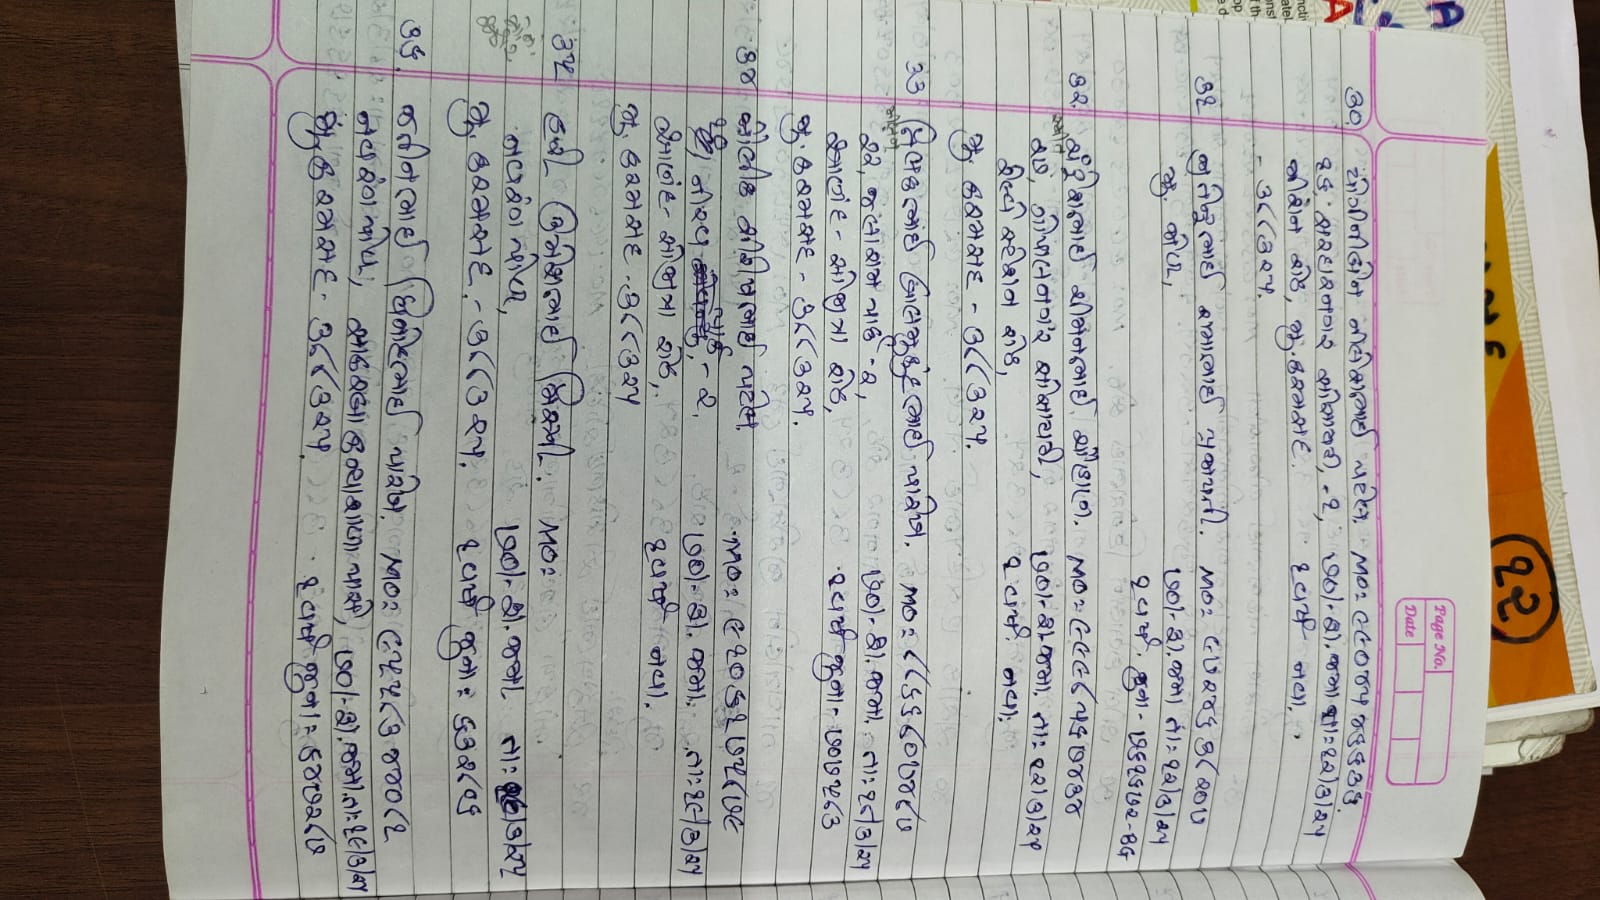 ૧૨
Page No.
Date
૩૦. યોગીનીબેન નીલેશભાઈ પટેલ. MO: ૯૯૦૪૫ ૪૬૬૩૬.
૧૬, સરદારનગર સોસાયટી, -૧, ૭૦/- રૂા. જમા તા: ૧૨/૩/૨૫
સ્ટેશન રોડ, મુ. કરમસદ. ૧ વર્ષ નવા.
- ૩૮૮૩૨૫.
૩૧ જીતેન્દ્રભાઈ રામાભાઈ પ્રજાપતી. MO: ૯૭૨૪૬ ૩૮૨૦૫
મુ. મોગ્રી, ૭૦/- રૂા. જમા તા: ૧૨/૩/૨૫
૧ વર્ષ. જુના - ૭૬૧૬૭૨-BG
૩૨. ચંદ્રેશભાઈ ચીમનભાઈ ચૌહાણ. MO: ૯૯૯૮૫૬૭૪૩૪
૨૭, ગોપાલનગર સોસાયટી, ૭૦/- રૂા. જમા. તા: ૧૨/૩/૨૫
રેલ્વે સ્ટેશન રોડ, ૧ વર્ષ. નવા.
મુ. કરમસદ - ૩૮૮૩૨૫.
૩૩ તિલકભાઈ બાલમુકુંદભાઈ પારેખ. MO: ૮૮૬૬૮૦૭૪૮૭
૨૨, જલારામ પાર્ક -૨, ૭૦/- રૂા. જમા. તા: ૧૮/૩/૨૫
આણંદ - સોજીત્રા રોડ, ૧ વર્ષ જુના - ૭૦૭૫૮૩
મુ. કરમસદ - ૩૮૮૩૨૫.
૩૪ મૌલીક શીરીષભાઈ પટેલ. MO: ૯૧૦૬૧૭૫૮૭૯
૧૦, નીરવ પાર્ક, - ૨. ૭૦/- રૂા. જમા. તા: ૧૯/૩/૨૫
આણંદ - સોજીત્રા રોડ, ૧ વર્ષ નવા.
મુ. કરમસદ - ૩૮૮૩૨૫
૩૫ હર્ષી ઉમેશભાઈ મિસ્ત્રી. MO:
નવરંગ પોળ, ૭૦/- રૂા. જમા તા: /૩/૨૫
મુ. કરમસદ. - ૩૮૮૩૨૫. ૧ વર્ષ જુના: ૬૩૨૮૯૬
૩૬. જતીનભાઈ વિનોદભાઈ પારેખ. MO: ૯૫૫૮૩૪૪૦૮૧
નવરંગ પોળ, સાકરબા કન્યાશાળા પાસે, ૭૦/- રૂા. જમા. તા: ૧૯/૩/૨૫
મુ. કરમસદ - ૩૮૮૩૨૫. ૧ વર્ષ જુના: ૬૪૭૨૮૭